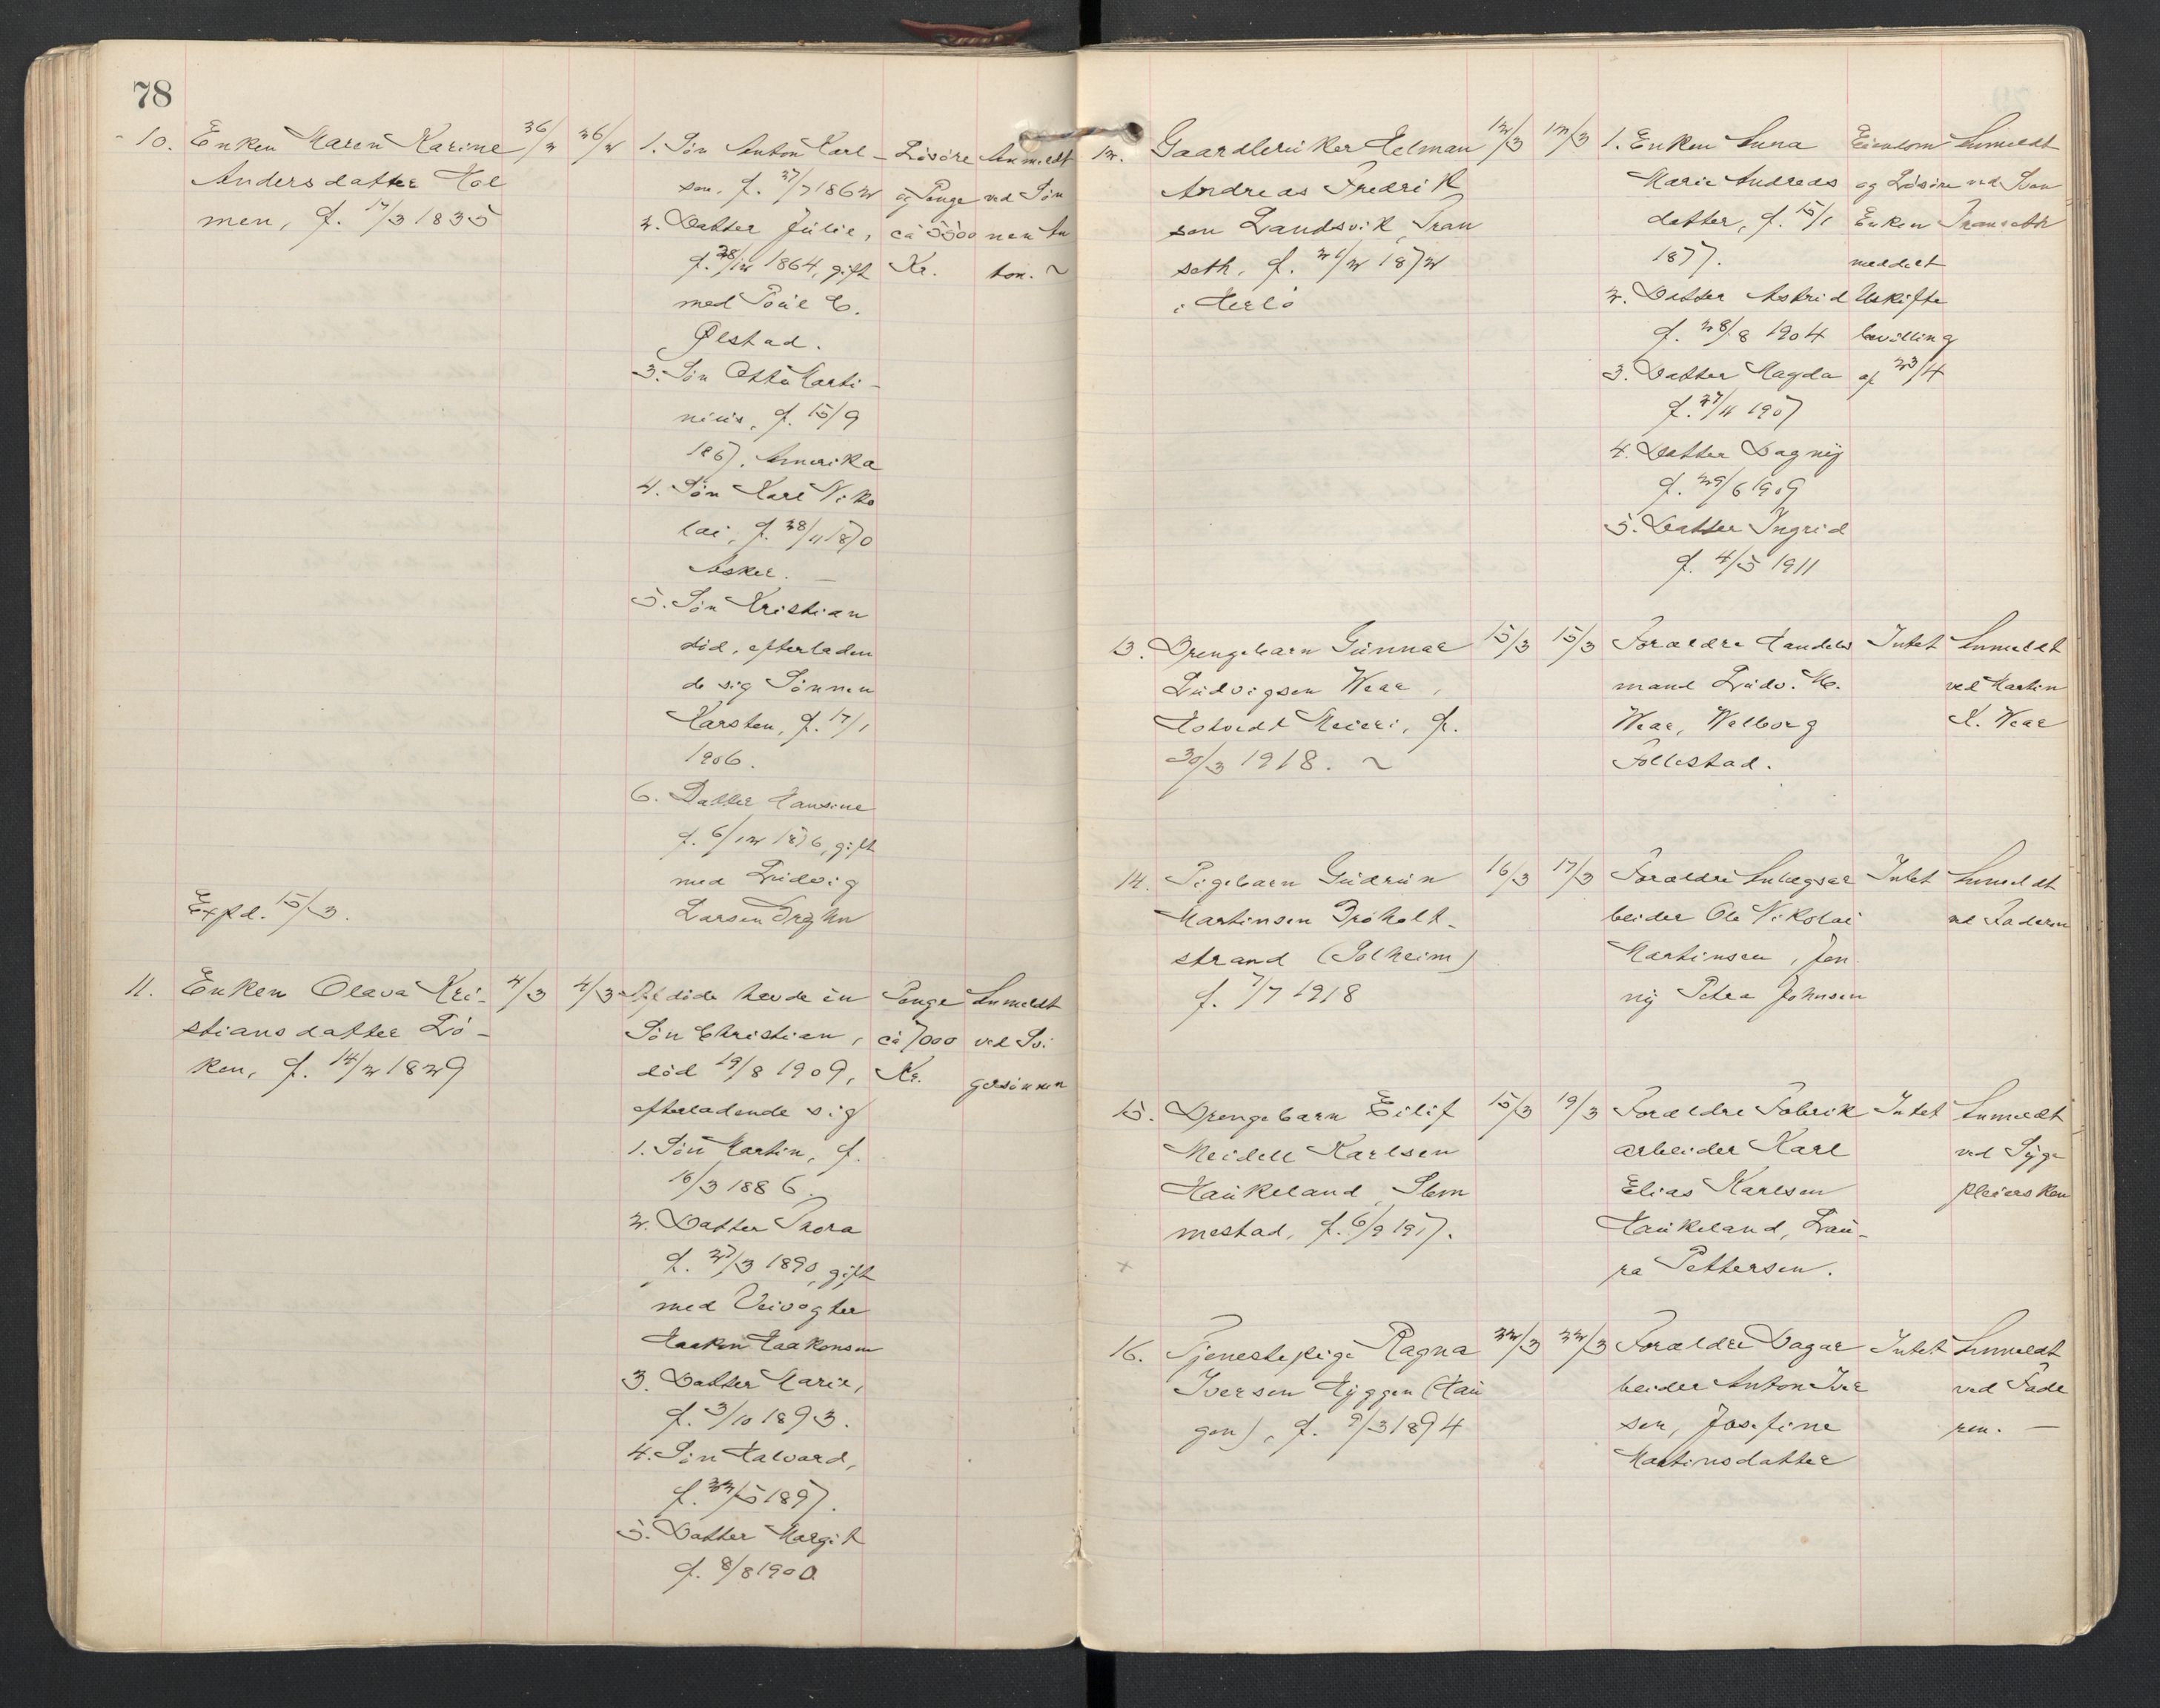 78
10. Enken Maren Karine 26/2 26/2
Andersdatter Hol
men, f. 17/3 1835
1. Sön Anton Karl-
sen, f. 27/7 1862
2. Datter Julie,
f. 28/12 1864, gift
med Poul C.
Ølstad.
3. Sön Otto Marti-
nius, f. 15/9
1867. Amerika
4. Sön Karl Niko
lai, f. 28/11 1870
Asker. —
5. Sön Kristian
död, efterladen
de sig Sönnen
Karsten, f. 17/1
1906.
6. Datter Hansine
f. 6/12 1876, gift
med Ludvig
Larsen
Lösöre
og Penge
ca 5500
Kr.
Anmeldt
ved Sön
nen An
ton. ~
Expd. 15/3.
11. Enken Olava Kri-
stiansdatter Lö-
ken, f. 14/2 1829
4/3 4/3
Afdöde havde en
Sön Christian,
död 19/8 1909,
efterladende sig
1. Sön Martin, f.
16/3 1886.
2. Datter Thora
f. 27/3 1890, gift
med Veivogter
Haakon Haakonsen
3. Datter Marie,
f. 3/10 1893.
4. Sön Halvard,
f. 22/5 1897.
5. Datter Margit
f. 8/8 1900
Penge
ca 7000
Kr.
Anmeldt
ved Svi
gersönnen
12. Gaardbruker Helman
Andreas Fredrik
sen Landsvik, Tran
seth, f. 21/2 1872
i Herlö
12/3 12/3
1. Enken Anna
Marie Andreas
datter, f. 15/1
1877.
2. Datter Astrid
f. 28/8 1904
3. Datter Magda
f. 27/11 1907
4. Datter Dagny
f. 29/6 1909
5. Datter Ingrid
f. 4/5 1911
Eiendom
og Lösöre
Enken
meddelt
Uskifte
bevilling
af 23/4
Anmeldt
ved Sven
Transeth
13. Drengebarn Gunnar
Ludvigsen Wear,
Hotvedt Meieri, f.
30/3 1918. ~
15/3 15/3
Foraeldre Handels
mand Ludv. M.
Wear, Walborg
Follestad.
Intet
Anmeldt
ved Martin
K. Wear
14. Pigebarn Gudrun
Martinsen Bröholt-
strand (Solheim)
f. 7/7 1918
16/3 17/3
Foraeldre Anlegsar
beider Ole Nikolai
Martinsen, Jen
ny Petra Johnsen
Intet
Anmeldt
ved Faderen
15. Drengebarn Eilif
Meidell Karlsen
Haukeland, Slem
mestad, f. 6/9 1917.
15/3 19/3
Foraeldre Fabrik
arbeider Karl
Elias Karlsen
Haukeland, Lau-
ra Pettersen.
Intet
Anmeldt
ved Syge
pleiersken
16. Tjenestepige Ragna
Iversen Hyggen (Hau
gen), f. 9/3 1894
22/3 22/3
Foraeldre Dagar
beider Anton Iver
sen, Josefine
Martinsdatter
Intet
Anmeldt
ved Fade
ren. —